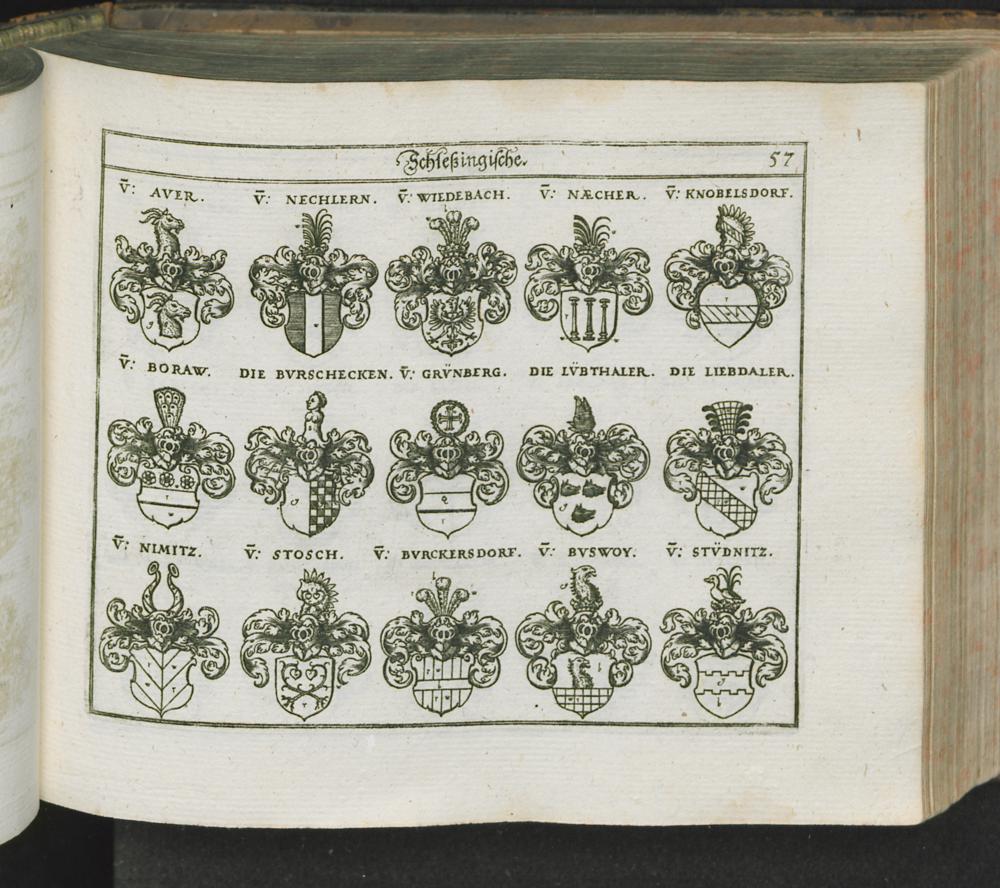 Schleßingische. 57
V̄: AVER. V̄: NECHLERN. V̄: WIEDEBACH. V̄: NÆCHER. V̄: KNOBELSDORF.
V̄: BORAW. DIE BVRSCHECKEN. V̄: GRV̈NBERG. DIE LV̈BTHALER. DIE LIEBDALER.
V̄: NIMITZ. V̄: STOSCH. V̄: BVRCKERSDORF. V̄: BVSWOY. V̄: STV̈DNITZ.